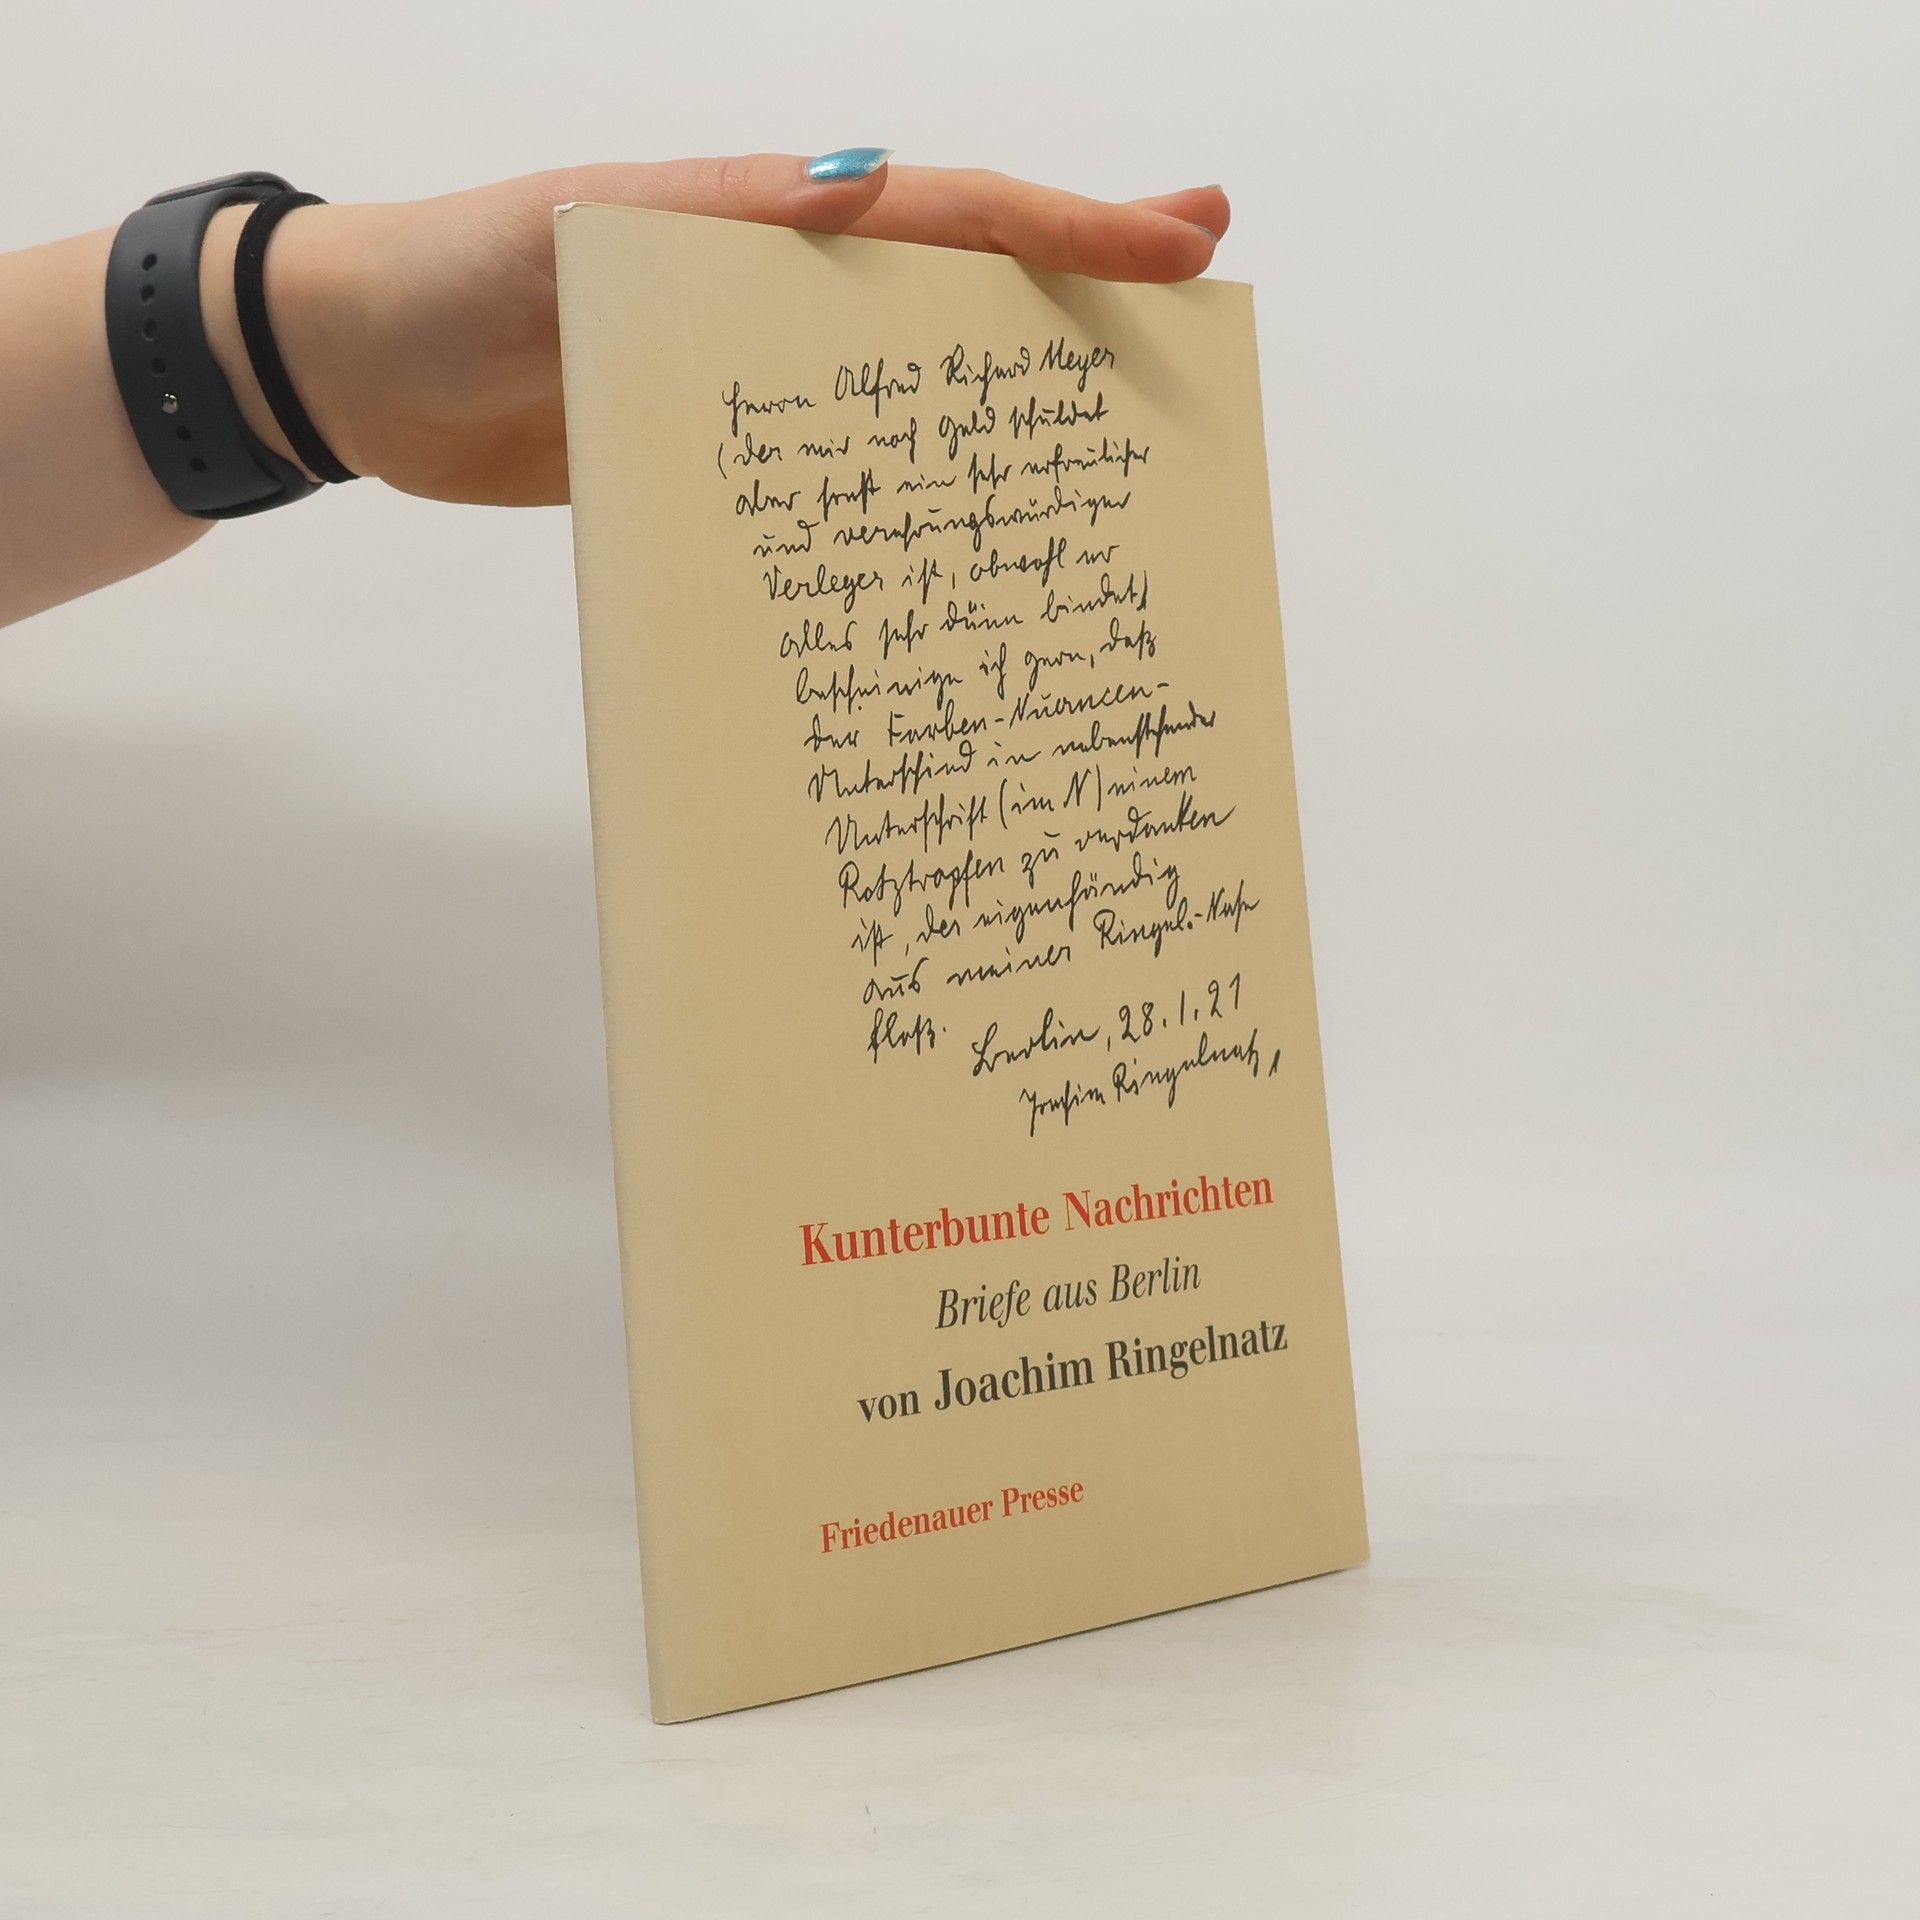 Herrn Alfred Richard Meyer
(der mir noch Geld schuldet
aber sonst ein sehr erfreulicher
und verehrungswürdiger
Verleger ist, obwohl er
alles sehr dünn bindet)
bescheinige ich gern, daß
der Farben-Nuancen-
Unterschied in nebenstehender
Unterschrift (im N) einem
Rotztropfen zu verdanken
ist, der eigenhändig
aus meiner Ringel.-Nase
floß.
Berlin, 28.1.21
Joachim Ringelnatz,
Kunterbunte Nachrichten
Briefe aus Berlin
von Joachim Ringelnatz
Friedenauer Presse